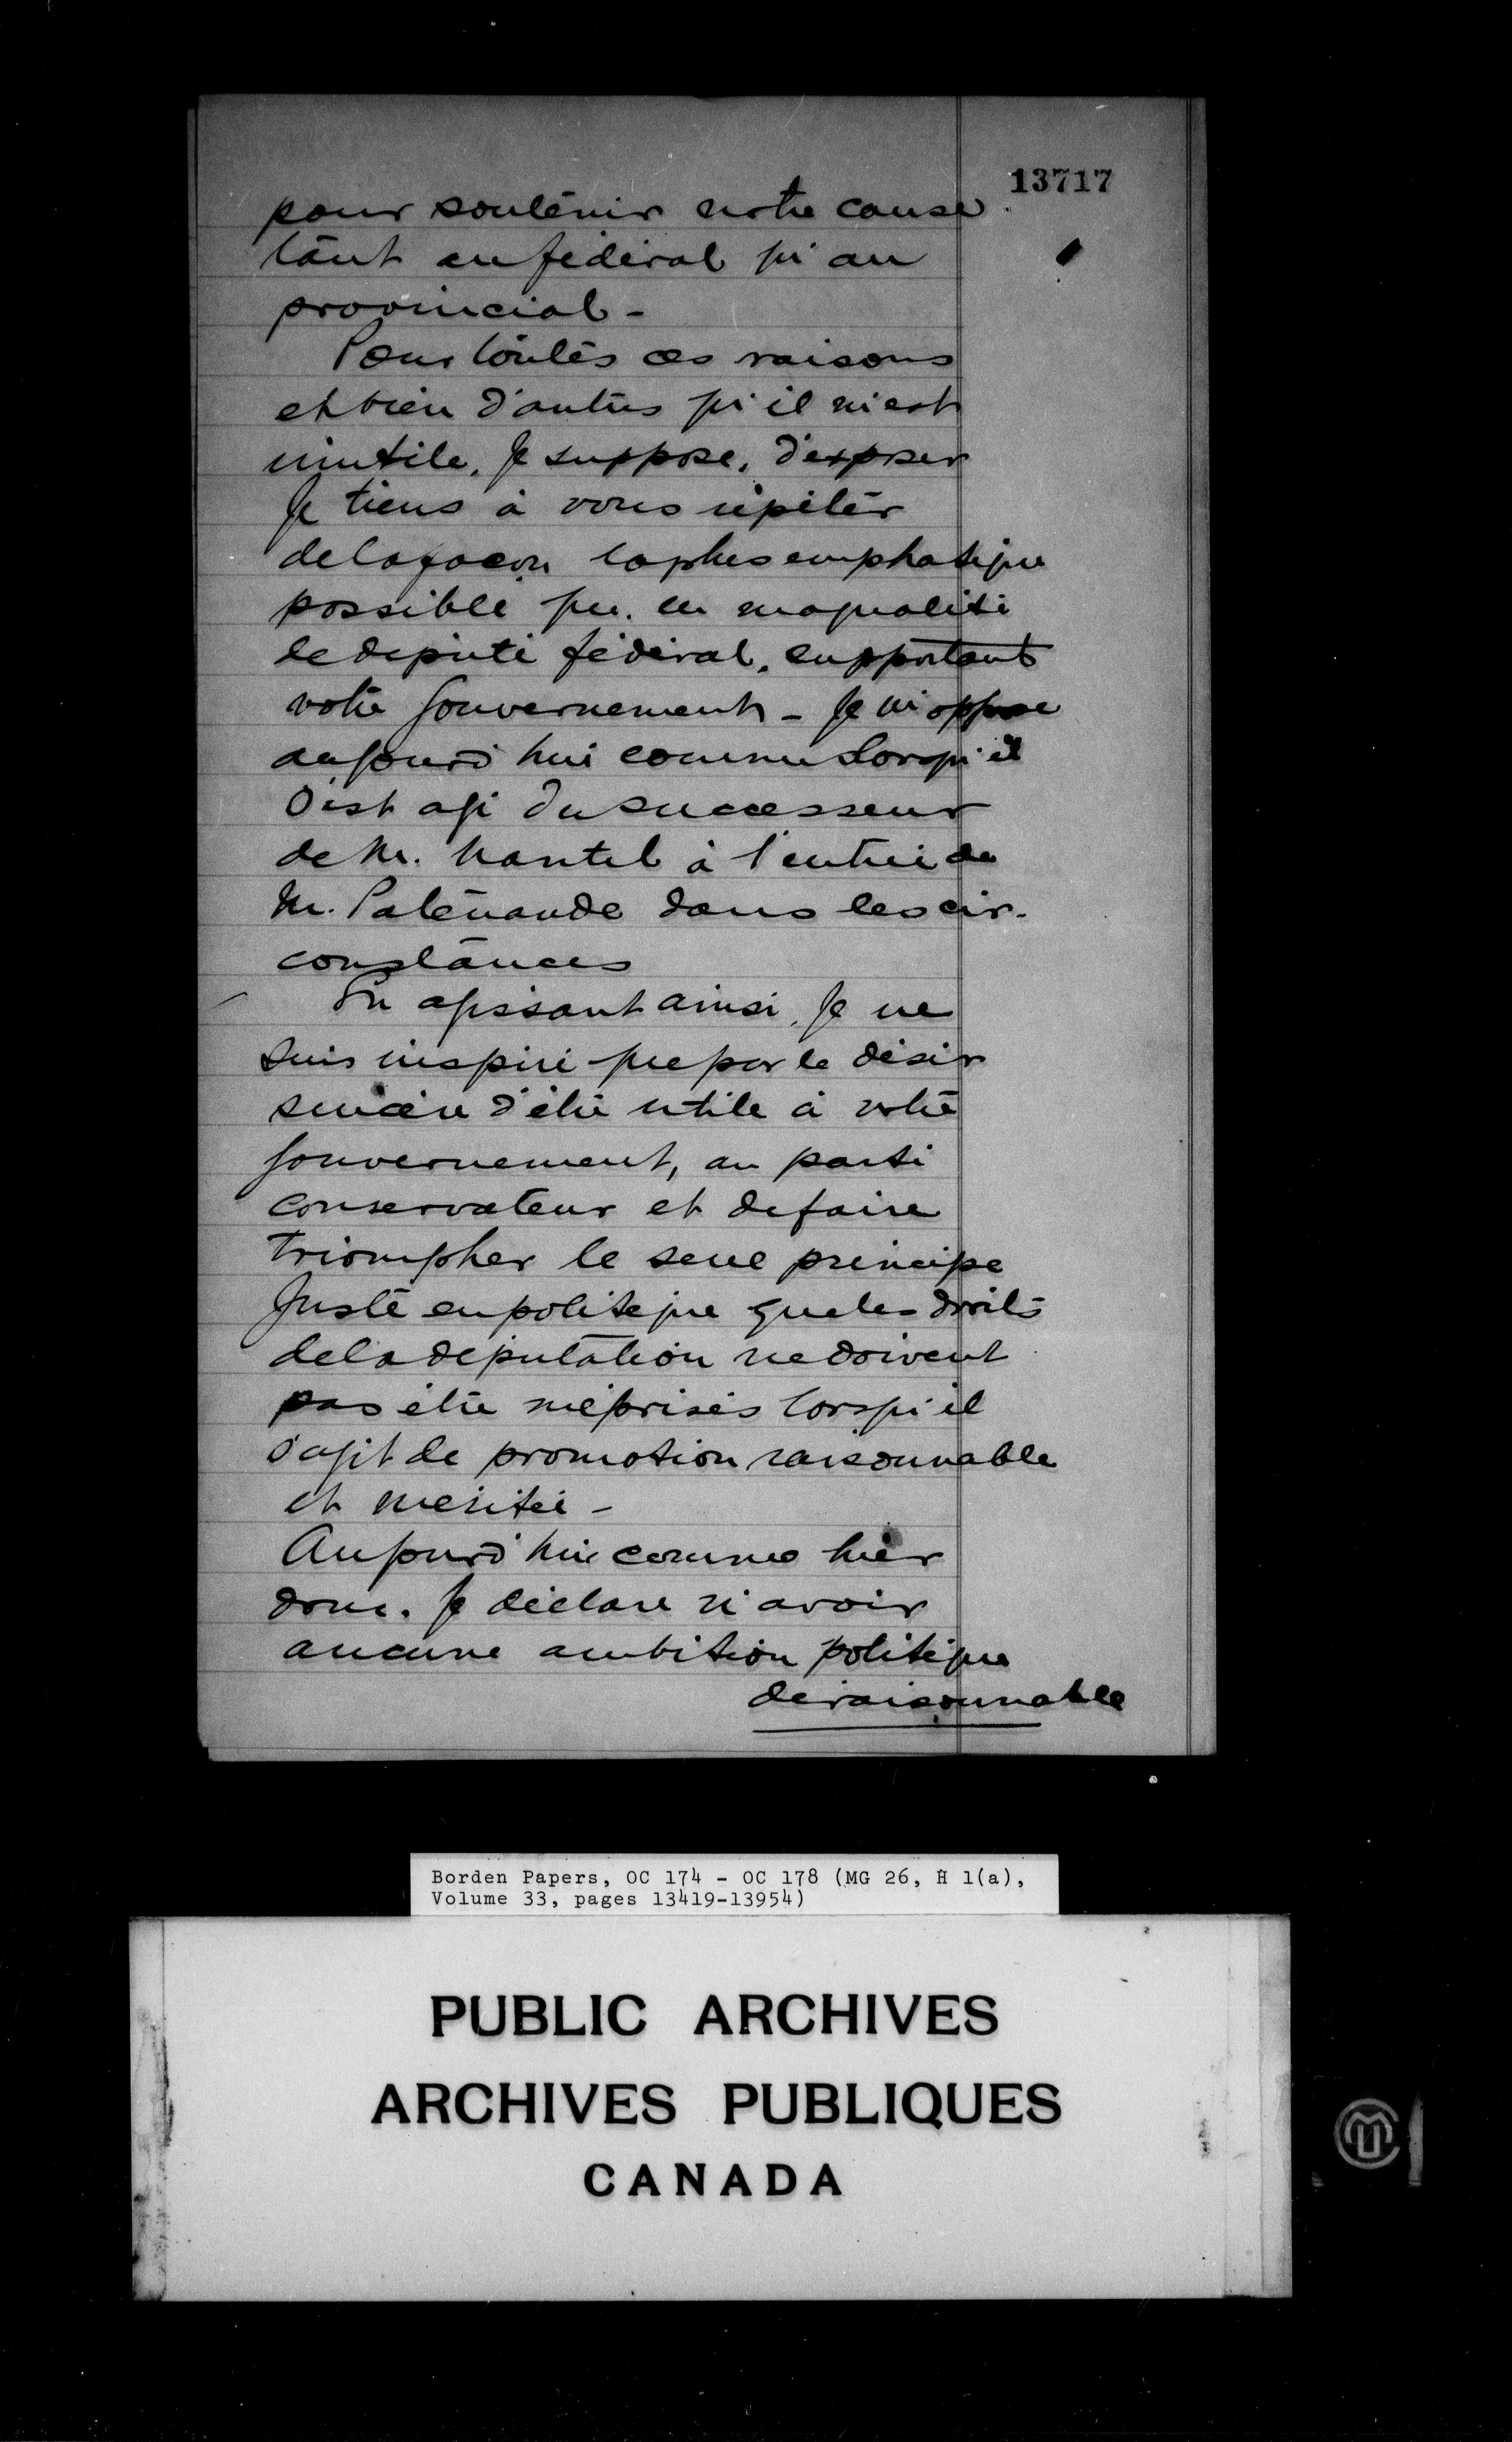 13717
pour soutenir notre cause
tant au fédéral qu'au
provincial -
Pour toutes ces raisons
et bien d'autres qu'il m'est
inutile, je suppose, d'exposer
Je tiens à vous répéter
de la façon la plus emphatique
possible que, en ma qualité
de député fédéral, supportant
votre gouvernement - Je m'oppose
aujourd'hui comme lorsqu'il
s'est agi du successeur
de M. Nantel à l'entrée de
M. Patenaude dans les cir-
constances
En agissant ainsi, je ne
suis inspiré que par le désir
sincère d'être utile à votre
gouvernement, au parti
conservateur et de faire
triompher le seul principe
juste en politique que les droits
de la députation ne doivent
pas être méprisés lorsqu'il
s'agit de promotion raisonnable
et méritée -
Aujourd'hui comme hier
donc, je déclare n'avoir
aucune ambition politique
déraisonnable
Borden Papers, OC 174 - OC 178 (MG 26, H 1(a),
Volume 33, pages 13419-13954)
PUBLIC ARCHIVES
ARCHIVES PUBLIQUES
CANADA